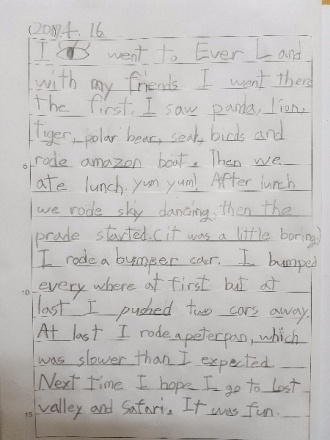 I went to Ever Land
with my friends I went there
the first. I saw panda, lion,
tiger, polar bear, seal, birds and
5 rode amazon boat. Then we
ate lunch. yum yum! After lunch
we rode sky dancing, then the
prade started. (it was a little boring)
I rode a bumper car. I bumped
10 every where at first but at
last I pushed two cars away.
At last I rode a peterpan, which
was slower than I expected
Next time I hope I go to Lost
15 valley and Safari. It was fun.